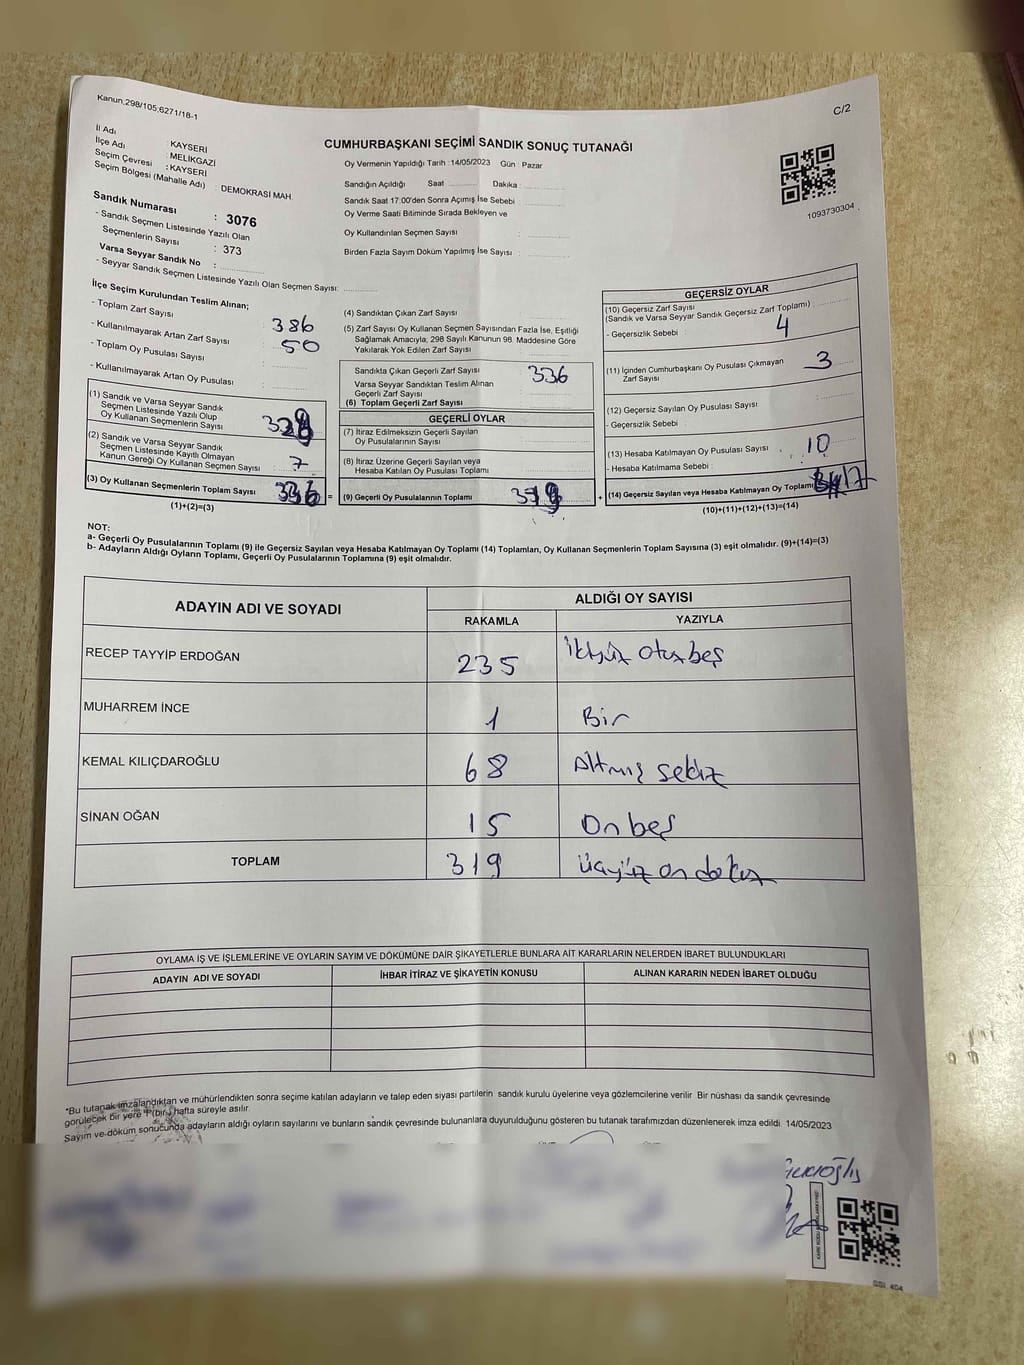 Kanun;298/105,6271/18-1
C/2
İl Adı : KAYSERİ
İlçe Adı : MELİKGAZİ
Seçim Çevresi : KAYSERİ
Seçim Bölgesi (Mahalle Adı) : DEMOKRASİ MAH
Sandık Numarası : 3076
- Sandık Seçmen Listesinde Yazılı Olan
Seçmenlerin Sayısı : 373
Varsa Seyyar Sandık No :
- Seyyar Sandık Seçmen Listesinde Yazılı Olan Seçmen Sayısı:
CUMHURBAŞKANI SEÇİMİ SANDIK SONUÇ TUTANAĞI
Oy Vermenin Yapıldığı Tarih : 14/05/2023 Gün : Pazar
Sandığın Açıldığı Saat Dakika :
Sandık Saat 17:00'den Sonra Açımış İse Sebebi :
Oy Verme Saati Bitiminde Sırada Bekleyen ve
Oy Kullandırılan Seçmen Sayısı :
Birden Fazla Sayım Döküm Yapılmış İse Sayısı :
1093730304
İlçe Seçim Kurulundan Teslim Alınan;
- Toplam Zarf Sayısı : 386
- Kullanılmayarak Artan Zarf Sayısı : 50
- Toplam Oy Pusulası Sayısı :
- Kullanılmayarak Artan Oy Pusulası :
(1) Sandık ve Varsa Seyyar Sandık
Seçmen Listesinde Yazılı Olup
Oy Kullanan Seçmenlerin Sayısı : 329
(2) Sandık ve Varsa Seyyar Sandık
Seçmen Listesinde Kayıtlı Olmayan
Kanun Gereği Oy Kullanan Seçmen Sayısı : 7
(3) Oy Kullanan Seçmenlerin Toplam Sayısı 336
(1)+(2)=(3)
(4) Sandıktan Çıkan Zarf Sayısı :
(5) Zarf Sayısı Oy Kullanan Seçmen Sayısından Fazla İse, Eşitliği
Sağlamak Amacıyla; 298 Sayılı Kanunun 98. Maddesine Göre
Yakılarak Yok Edilen Zarf Sayısı :
Sandıkta Çıkan Geçerli Zarf Sayısı : 336
Varsa Seyyar Sandıktan Teslim Alınan
Geçerli Zarf Sayısı :
(6) Toplam Geçerli Zarf Sayısı :
GEÇERLİ OYLAR
(7) İtiraz Edilmeksizin Geçerli Sayılan
Oy Pusulalarının Sayısı :
(8) İtiraz Üzerine Geçerli Sayılan veya
Hesaba Katılan Oy Pusulası Toplamı :
= (9) Geçerli Oy Pusulalarının Toplamı 319 +
GEÇERSİZ OYLAR
(10) Geçersiz Zarf Sayısı :
(Sandık ve Varsa Seyyar Sandık Geçersiz Zarf Toplamı)
- Geçersizlik Sebebi : 4
(11) İçinden Cumhurbaşkanı Oy Pusulası Çıkmayan
Zarf Sayısı : 3
(12) Geçersiz Sayılan Oy Pusulası Sayısı :
- Geçersizlik Sebebi :
(13) Hesaba Katılmayan Oy Pusulası Sayısı : 10
- Hesaba Katılmama Sebebi :
(14) Geçersiz Sayılan veya Hesaba Katılmayan Oy Toplamı 17
(10)+(11)+(12)+(13)=(14)
NOT:
a- Geçerli Oy Pusulalarının Toplamı (9) ile Geçersiz Sayılan veya Hesaba Katılmayan Oy Toplamı (14) Toplamları, Oy Kullanan Seçmenlerin Toplam Sayısına (3) eşit olmalıdır. (9)+(14)=(3)
b- Adayların Aldığı Oyların Toplamı, Geçerli Oy Pusulalarının Toplamına (9) eşit olmalıdır.
ADAYIN ADI VE SOYADI
ALDIĞI OY SAYISI
RAKAMLA YAZIYLA
RECEP TAYYİP ERDOĞAN 235 İkiyüz otuzbeş
MUHARREM İNCE 1 Bir
KEMAL KILIÇDAROĞLU 68 Altmış sekiz
SİNAN OĞAN 15 On beş
TOPLAM 319 üçyüz on dokuz
OYLAMA İŞ VE İŞLEMLERİNE VE OYLARIN SAYIM VE DÖKÜMÜNE DAİR ŞİKAYETLERLE BUNLARA AİT KARARLARIN NELERDEN İBARET BULUNDUKLARI
ADAYIN ADI VE SOYADI İHBAR İTİRAZ VE ŞİKAYETİN KONUSU ALINAN KARARIN NEDEN İBARET OLDUĞU
*Bu tutanak imzalandıktan ve mühürlendikten sonra seçime katılan adayların ve talep eden siyasi partilerin sandık kurulu üyelerine veya gözlemcilerine verilir Bir nüshası da sandık çevresinde
görülecek bir yere 1 (bir) hafta süreyle asılır.
Sayım ve döküm sonucunda adayların aldığı oyların sayılarını ve bunların sandık çevresinde bulunanlara duyurulduğunu gösteren bu tutanak tarafımızdan düzenlenerek imza edildi. 14/05/2023